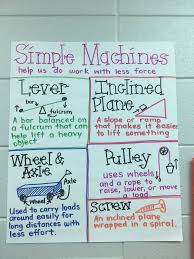 Simple Machines
help us do work with less force
Lever
A bar balanced on
a fulcrum that can
help lift a heavy
object.
Inclined
Plane
A slope or ramp
that makes it easier
to lift something
Wheel &
Axle
Used to carry loads
around easily for
long distances with
less effort.
Pulley
uses wheels
and a rope to
raise, lower, or move
a load
Screw
An inclined plane
wrapped in a spiral.